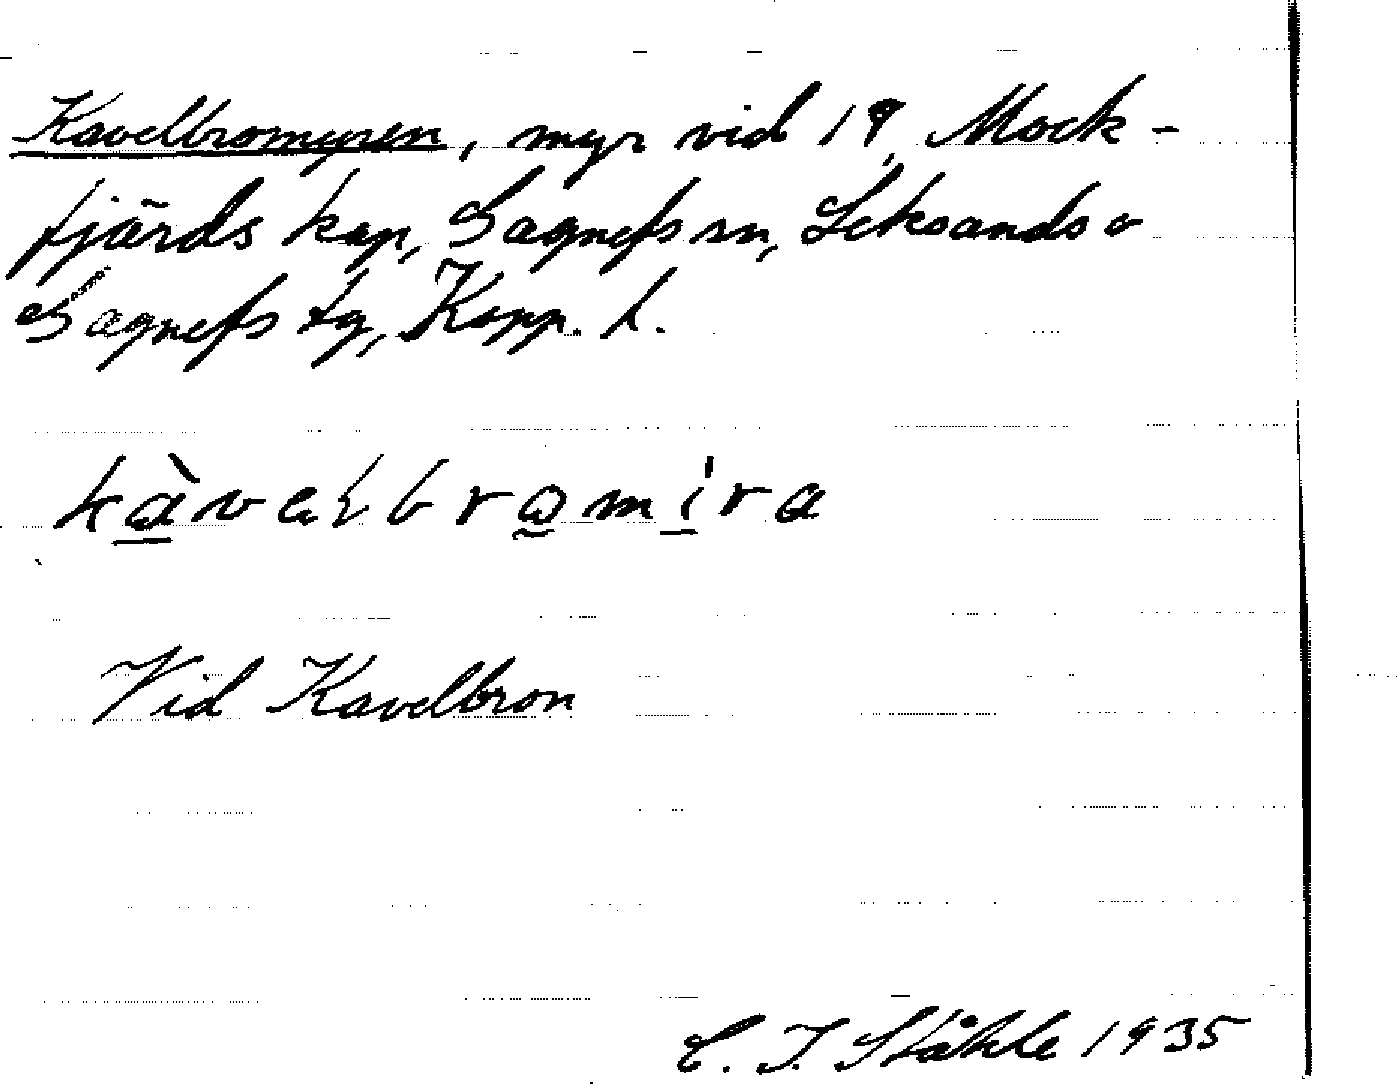 Kavelbromyren, myr vid 19, Mock-
fjärds kap, Gagnefs sn, Leksands o
Gagnefs tg, Kopp. l.
kàvelbromíra
Vid Kavelbron
C. I. Ståhle 1935